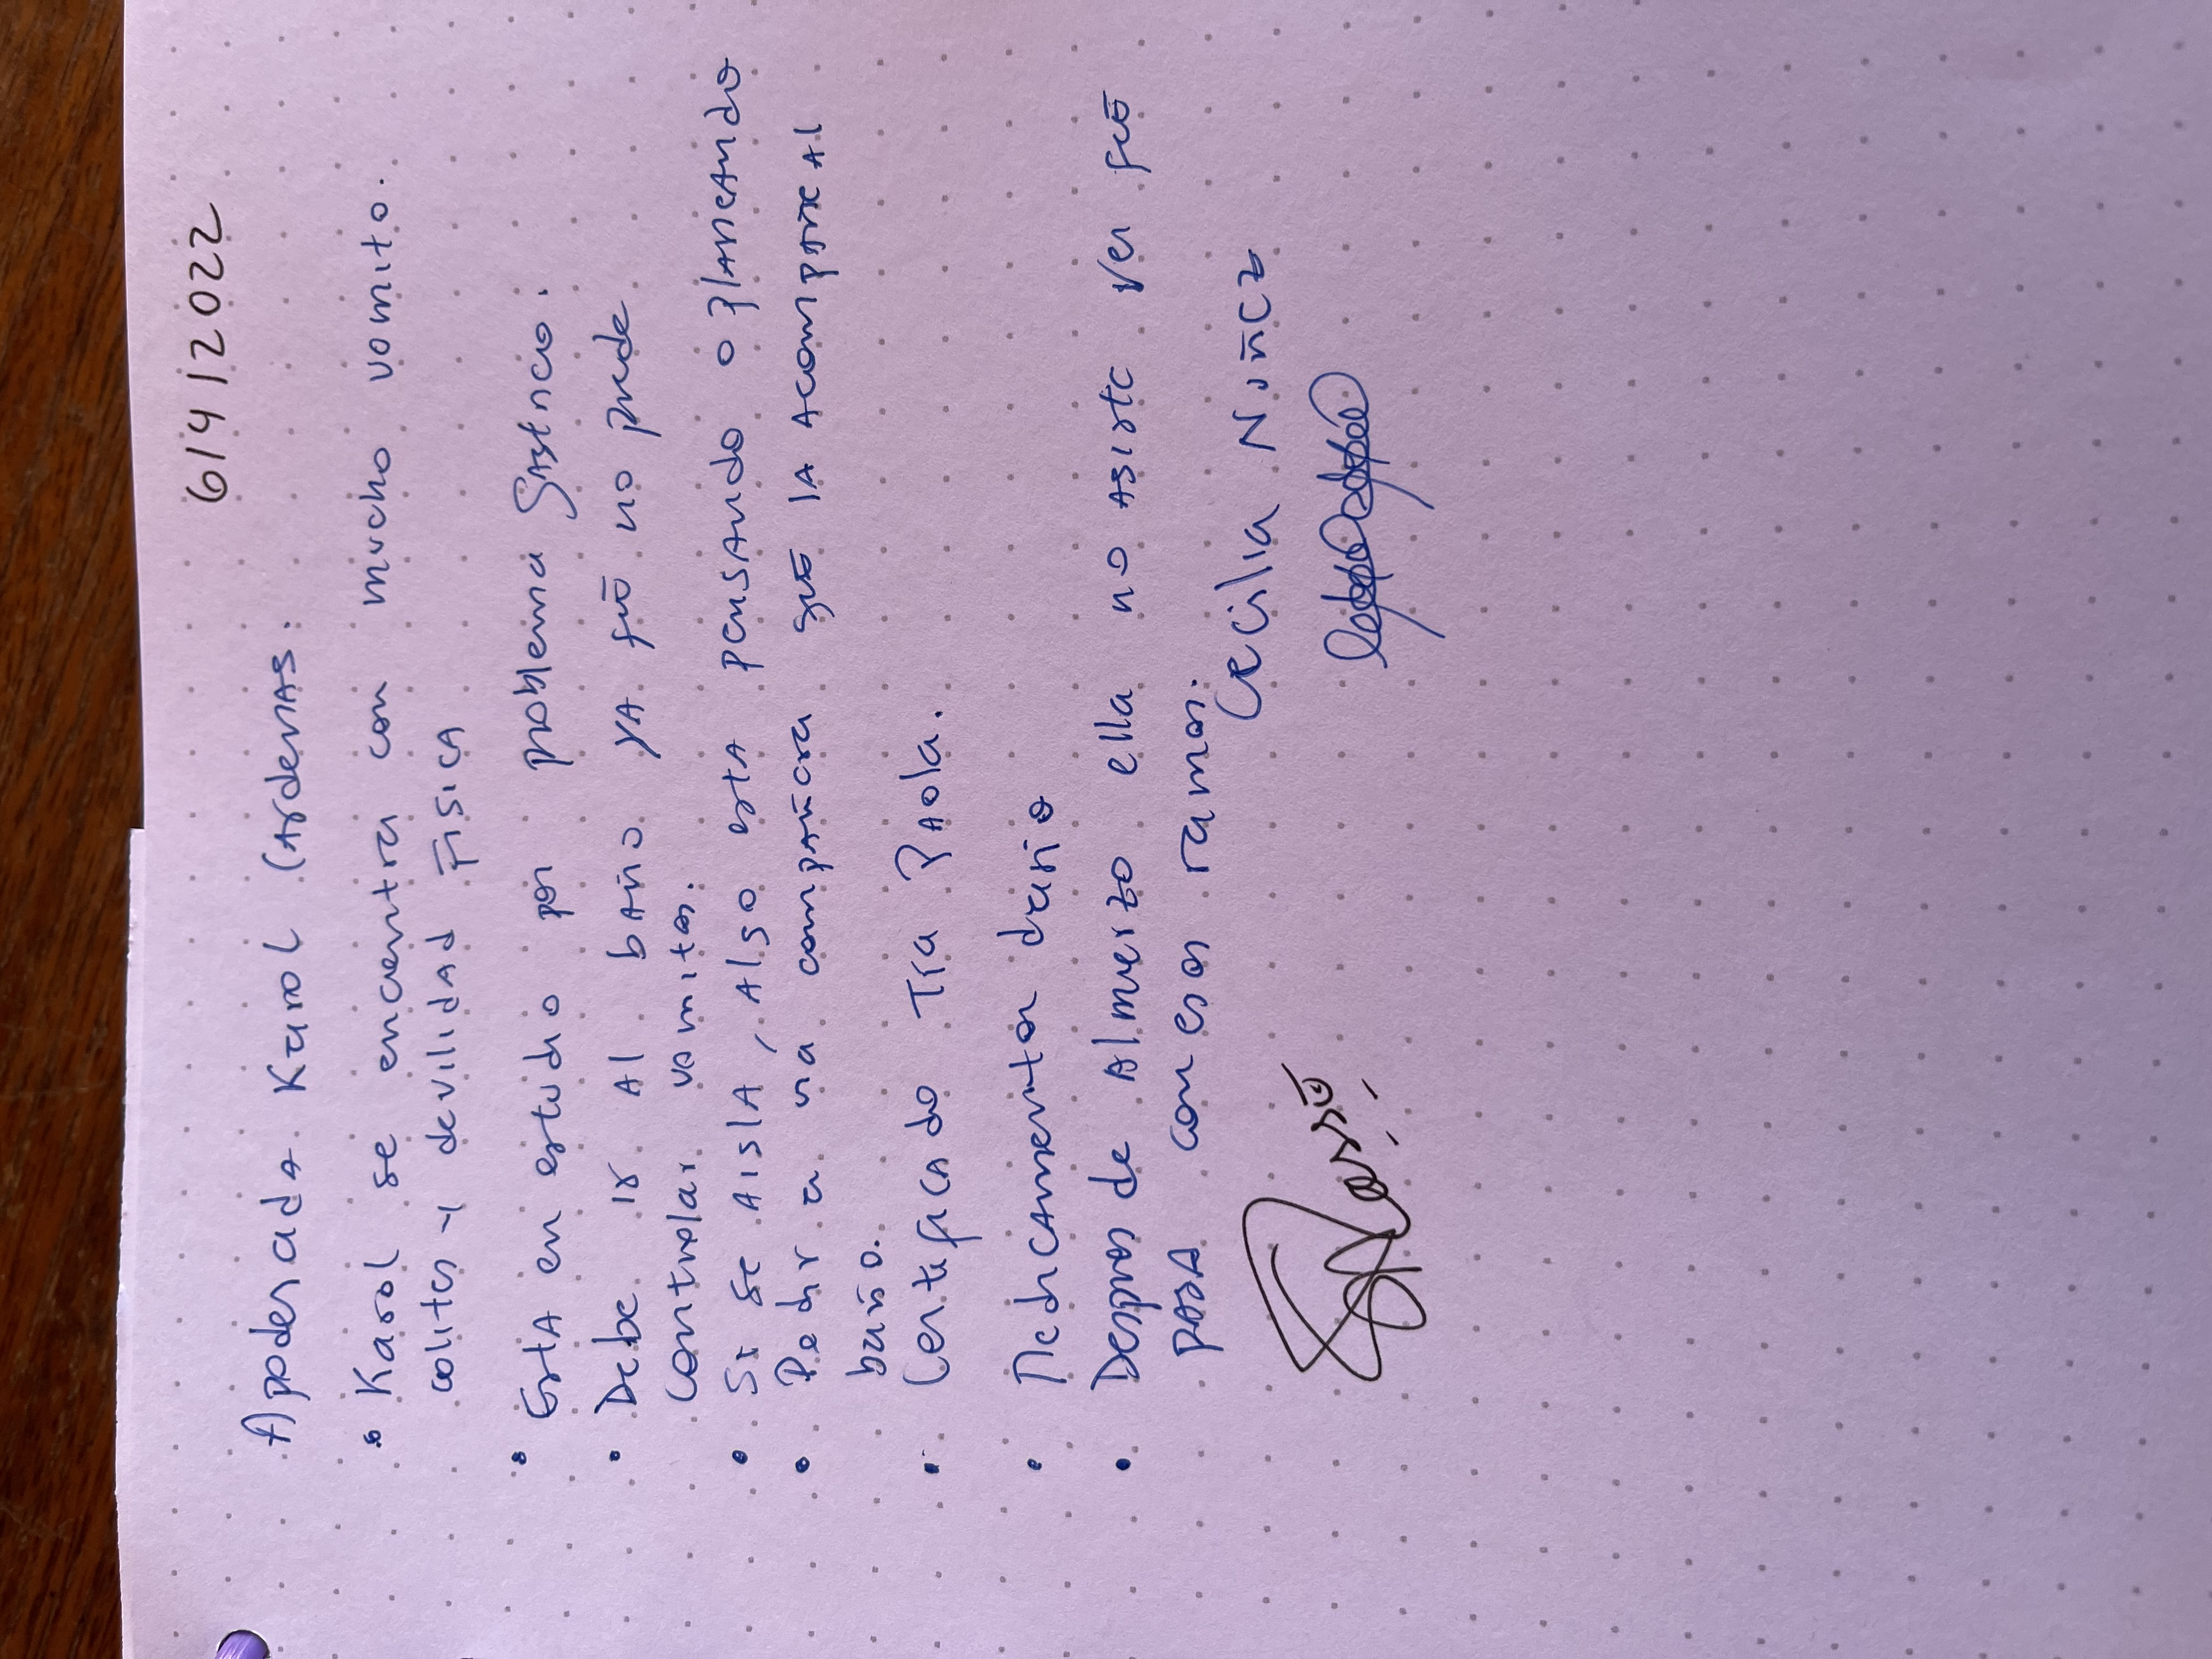 6/4/2022
Apoderada Karol Cardenas.
• Karol se encuentra con mucho vomito.
colitis y devilidad Fisica
• Esta en estudio por problema Gastrico.
• Debe ir al baño ya qué no puede
controlar vomitos.
• Si se aisla, algo esta pensando o planeando
• Pedir a una compañera qué la acompañe al
baño.
• Certificado Tia Paola.
• Medicamentos diario
• Despues de almuerzo ella no asiste ver qué
pasa con esos ramos.
Cecilia Nuñez